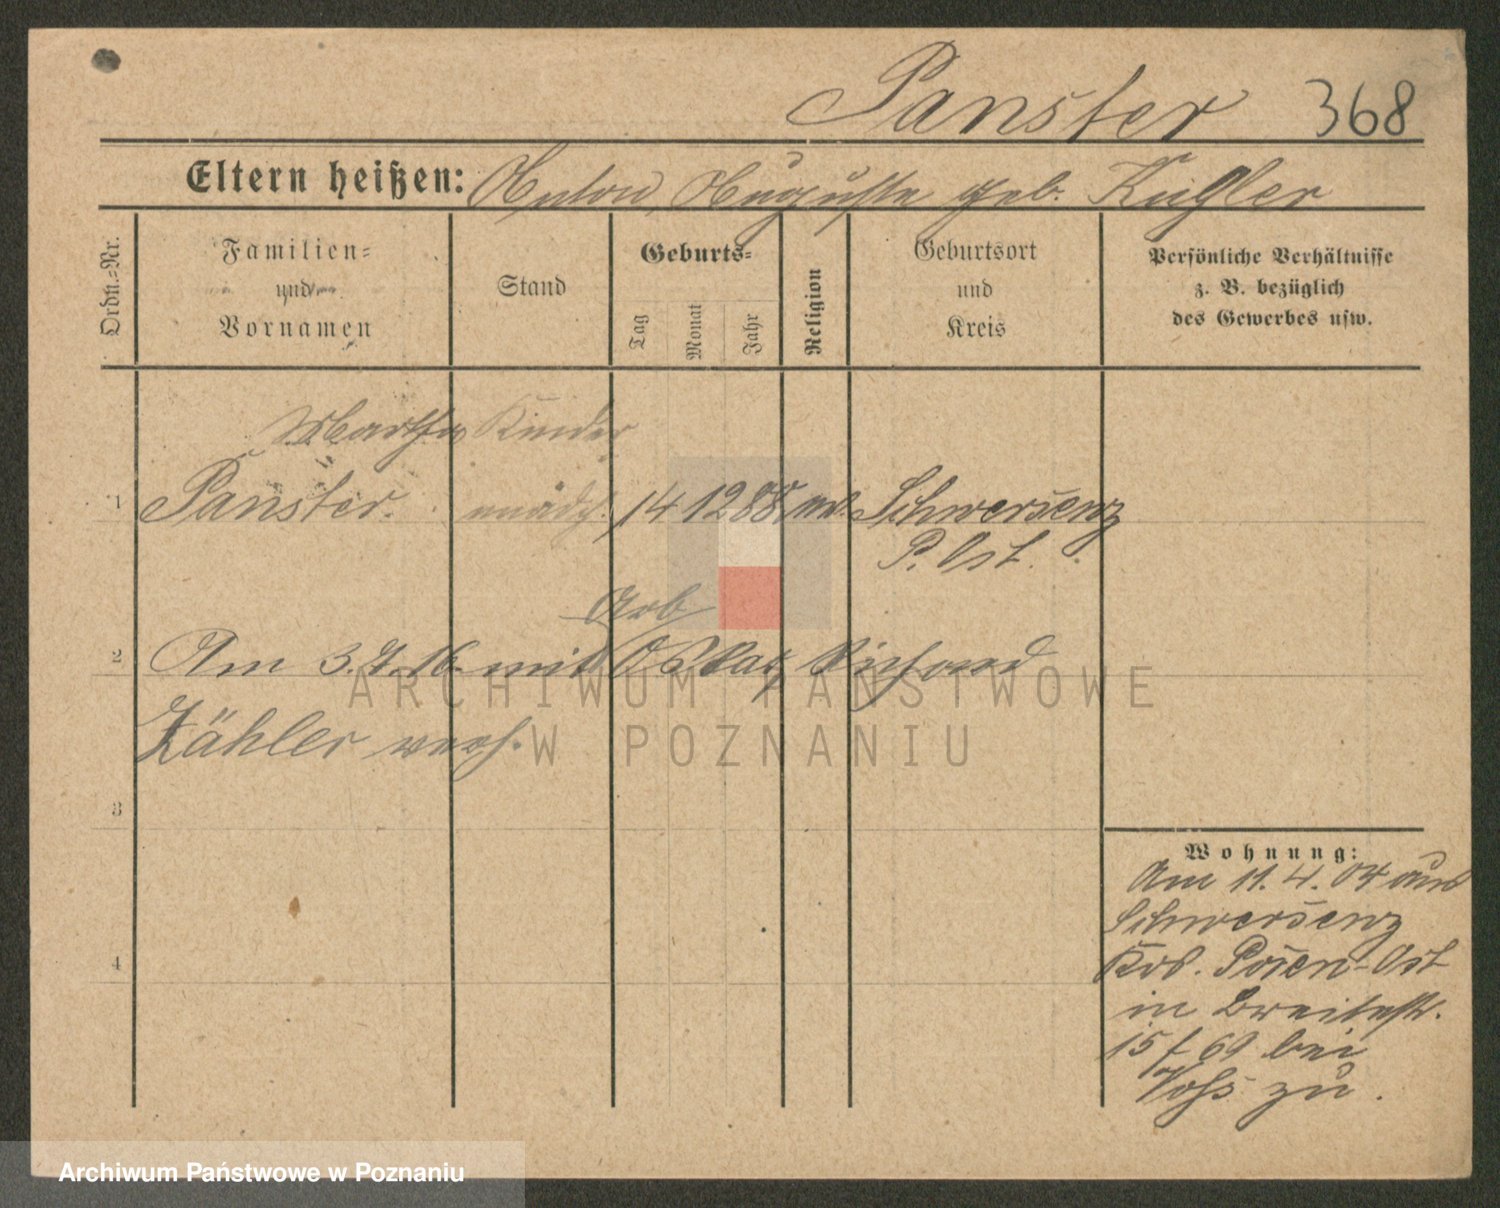 Panster 368
Eltern heißen: Anton, Auguste geb. Kugler
Ordn.=Nr.
Familien=
und
Vornamen
Stand
Geburts=
Tag
Monat
Jahr
Religion
Geburtsort
und
Kreis
Persönliche Verhältnisse
z. B. bezüglich
des Gewerbes usw.
Martha Kinder
1 Panster. mädch. 14 12 88. Schwersenz
P. Ost.
Arb
2 Am 3. 7. 16. mit Oskar, Richard
Zähler verh.
3
4
Wohnung:
Am 11. 4. 04 aus
Schwersenz
Krs. Posen-Ost
in Breitestr.
15 f 69 bei
Voss zu.
ARCHIWUM PAŃSTWOWE
W POZNANIU
Archiwum Państwowe w Poznaniu